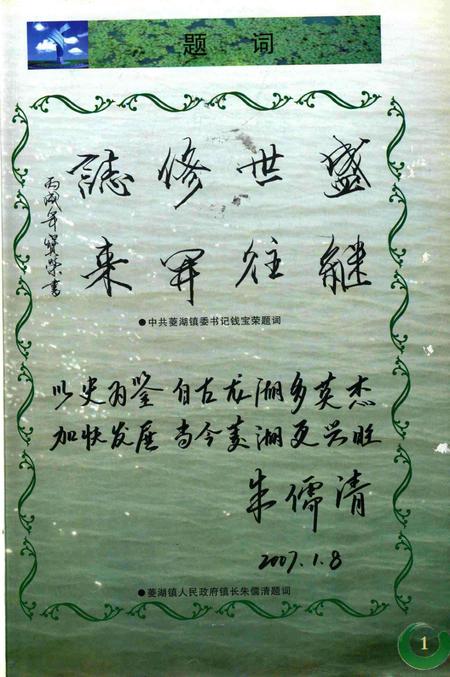 题 词
盛世修誌
継往開来
丙戌年寳榮書
●中共菱湖镇委书记钱宝荣题词
以史为鉴 自古龙湖多英杰
加快发展 当今菱湖更兴旺
朱儒清
2007.1.8
●菱湖镇人民政府镇长朱儒清题词
1